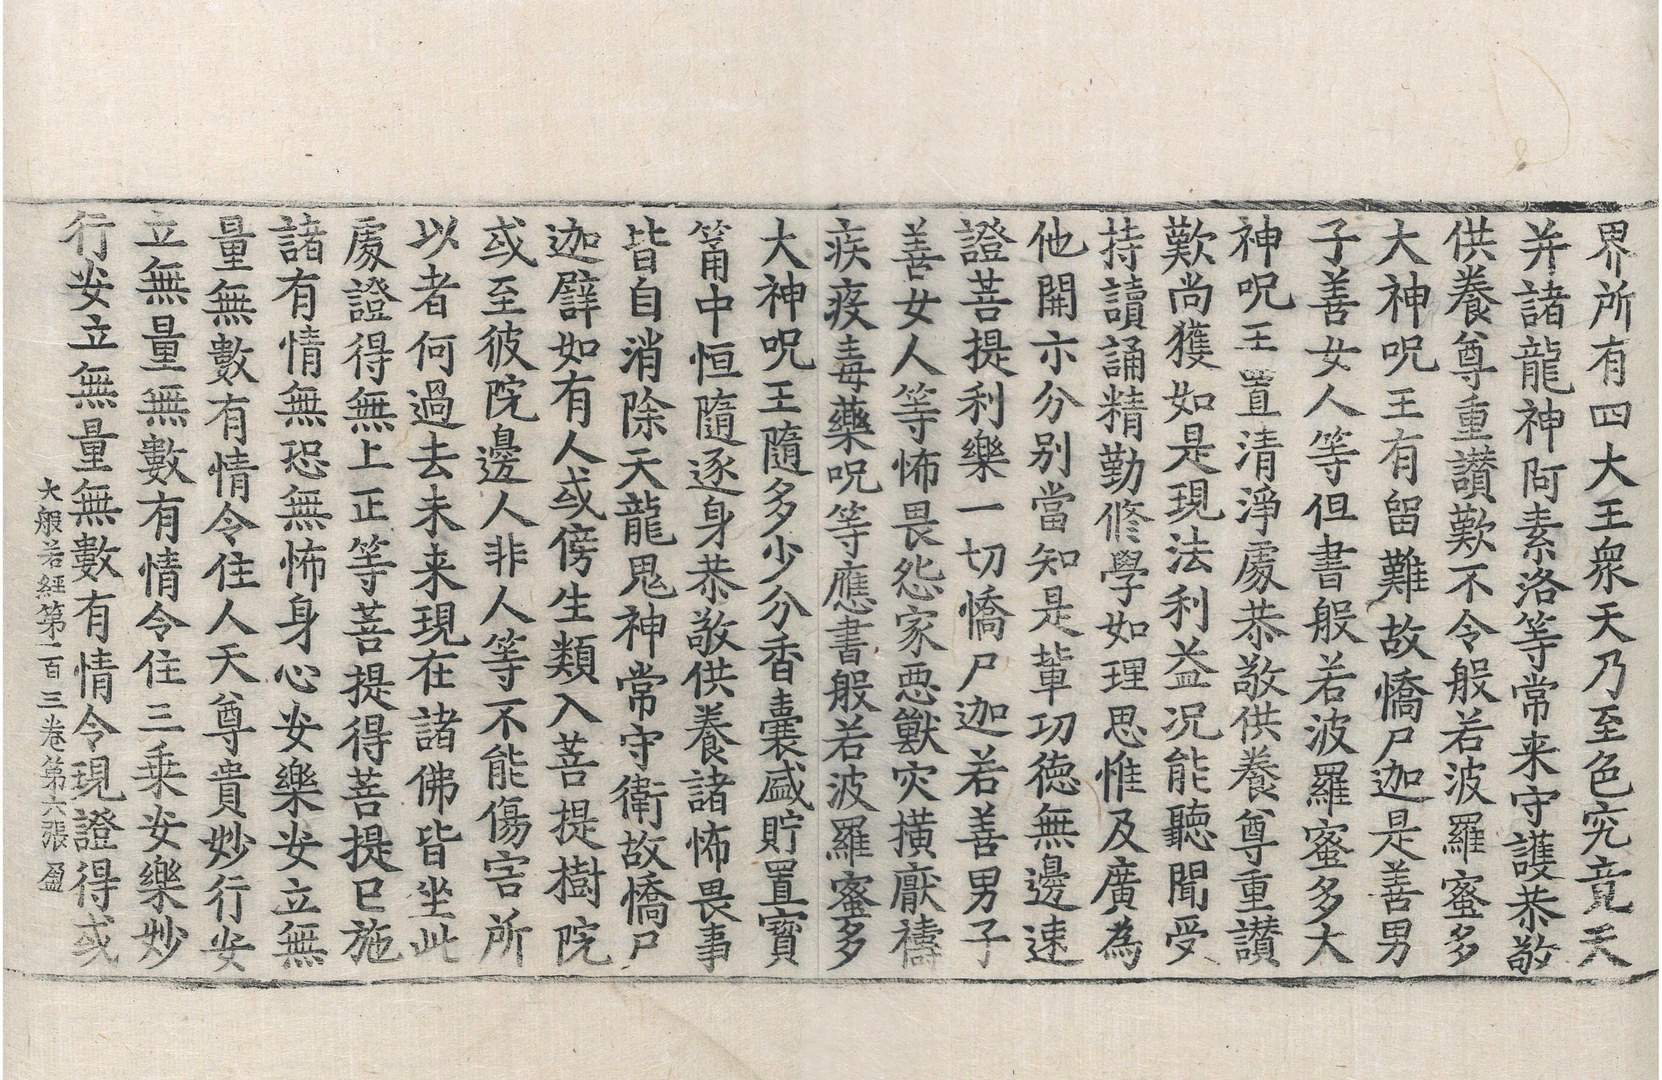 界所有四大王衆天乃至色究竟天
并諸龍神阿素洛等常来守護恭敬
供養尊重讃歎不令般若波羅蜜多
大神呪王有留難故憍尸迦是善男
子善女人等但書般若波羅蜜多大
神呪王置清淨處恭敬供養尊重讃
歎尚獲如是現法利益況能聽聞受
持讀誦精勤修學如理思惟及廣為
他開示分別當知是輩功德無邊速
證菩提利樂一切憍尸迦若善男子
善女人等怖畏怨家惡獸灾横厭禱
疾疫毒藥呪等應書般若波羅蜜多
大神呪王隨多少分香囊盛貯置寳
筩中恒隨逐身恭敬供養諸怖畏事
皆自消除天龍鬼神常守衛故憍尸
迦譬如有人或傍生類入菩提樹院
或至彼院邊人非人等不能傷害所
以者何過去未来現在諸佛皆坐此
處證得無上正等菩提得菩提已施
諸有情無恐無怖身心安樂安立無
量無數有情令住人天尊貴妙行安
立無量無數有情令住三乗安樂妙
行安立無量無數有情令現證得或
大般若經第一百三卷第六張 盈